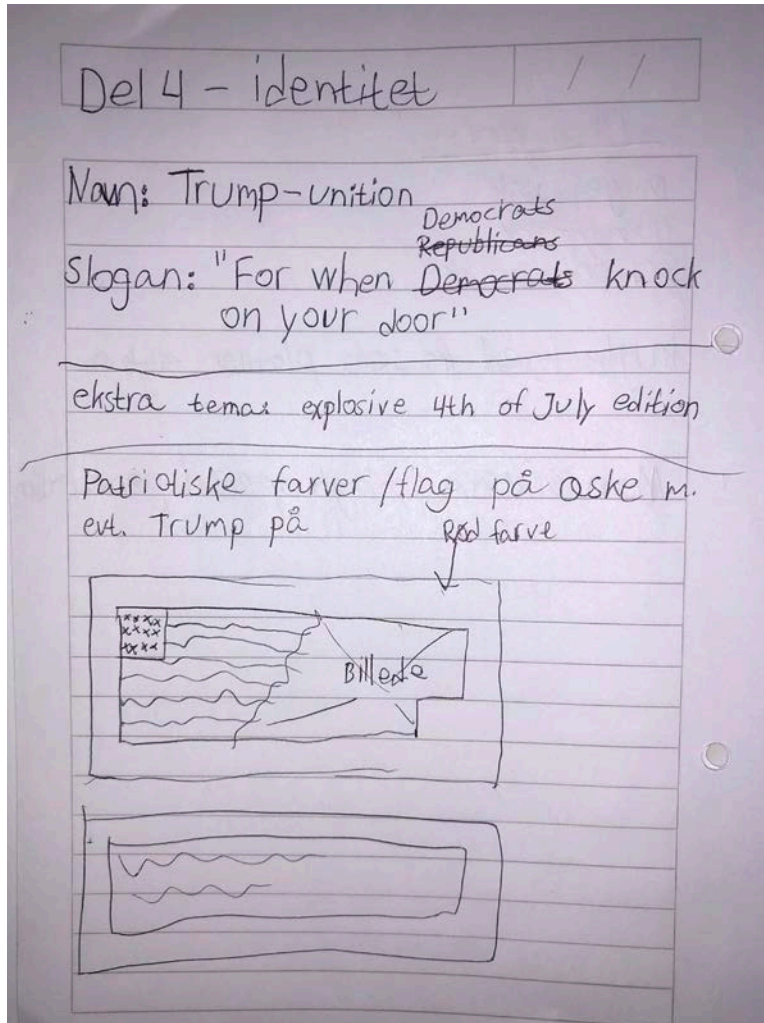 Del 4 - identitet
/ /
Navn: Trump-unition
Democrats
Republicans
Slogan: "For when Democrats knock
on your door"
ekstra tema: explosive 4th of July edition
Patriotiske farver/flag på æske m.
evt. Trump på
Rød farve
Billede